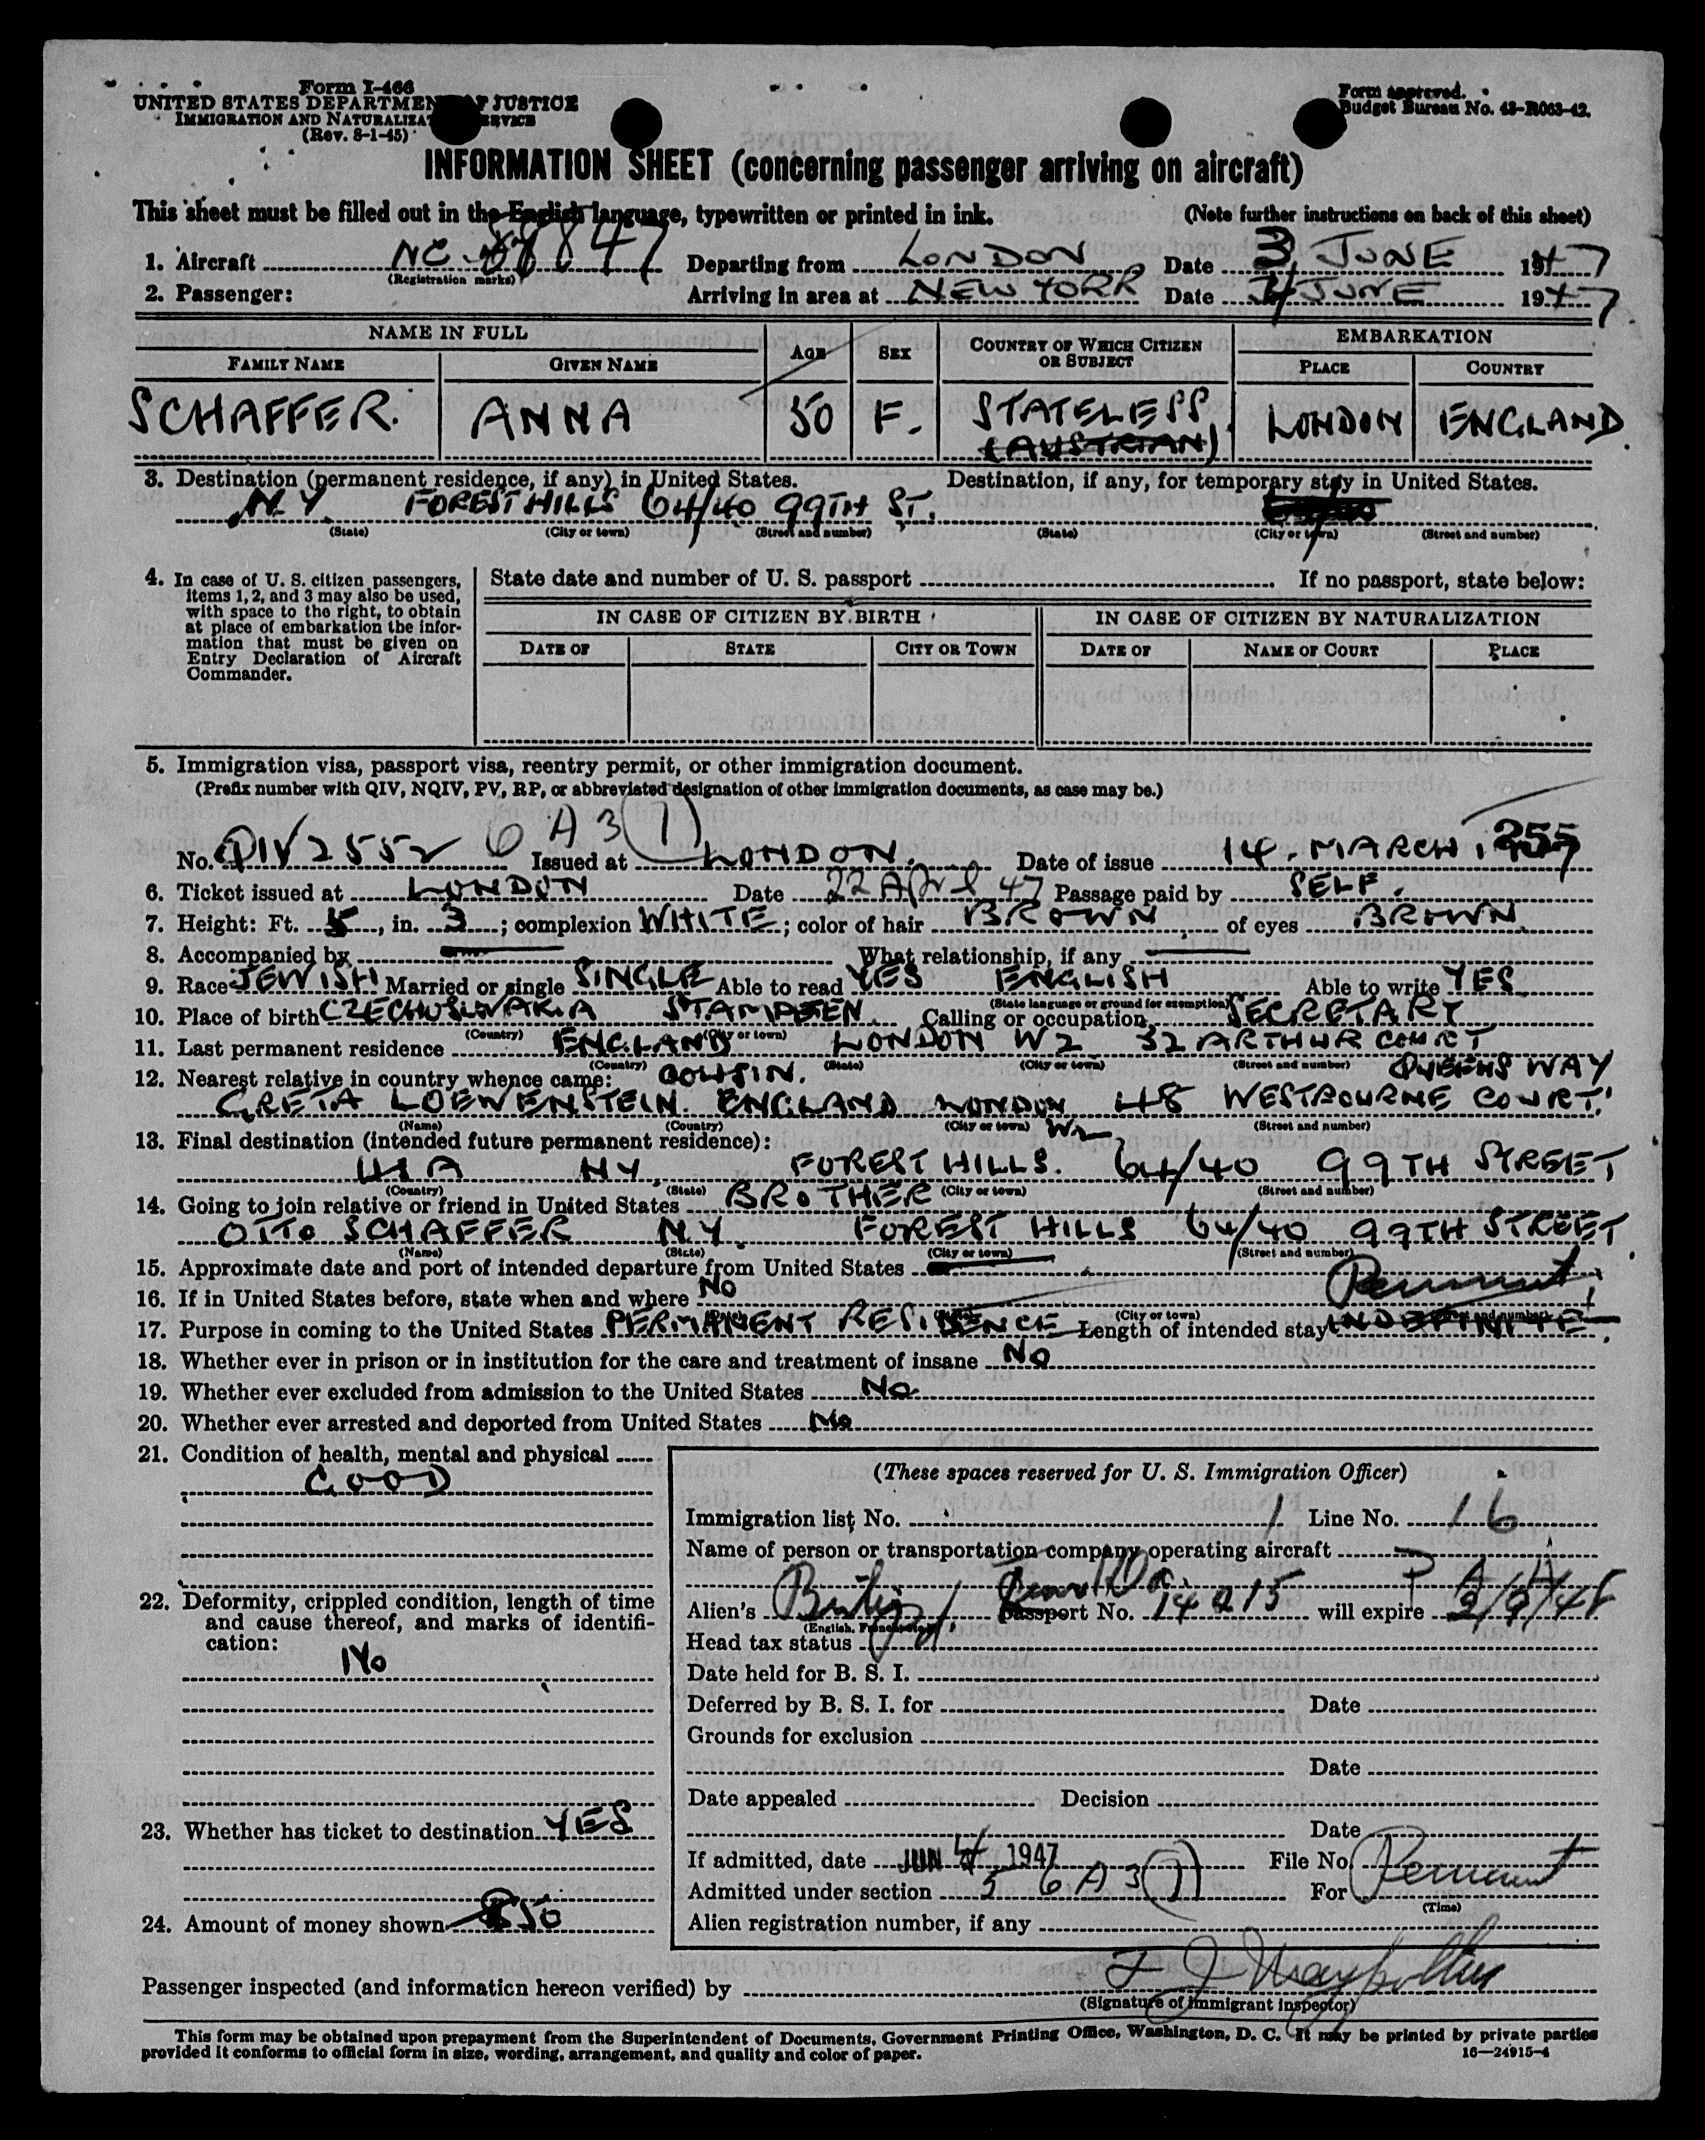 Form I-466
UNITED STATES DEPARTMENT OF JUSTICE
IMMIGRATION AND NATURALIZATION SERVICE
(Rev. 8-1-45)
Form approved.
Budget Bureau No. 43-R063-42.
INFORMATION SHEET (concerning passenger arriving on aircraft)
This sheet must be filled out in the English language, typewritten or printed in ink. (Note further instructions on back of this sheet)
1. Aircraft NC-88847 Departing from LONDON Date 3 JUNE 1947
(Registration marks)
2. Passenger: Arriving in area at NEW YORK Date 4 JUNE 1947
NAME IN FULL AGE SEX COUNTRY OF WHICH CITIZEN OR SUBJECT EMBARKATION
FAMILY NAME GIVEN NAME PLACE COUNTRY
SCHAFFER. ANNA 50 F. STATELESS LONDON ENGLAND
(AUSTRIAN)
3. Destination (permanent residence, if any) in United States. Destination, if any, for temporary stay in United States.
N.Y. FOREST HILLS 64/40 99TH ST.
(State) (City or town) (Street and number) (State) (City or town) (Street and number)
4. In case of U. S. citizen passengers, items 1, 2, and 3 may also be used, with space to the right, to obtain at place of embarkation the information that must be given on Entry Declaration of Aircraft Commander.
State date and number of U. S. passport If no passport, state below:
IN CASE OF CITIZEN BY BIRTH IN CASE OF CITIZEN BY NATURALIZATION
DATE OF STATE CITY OR TOWN DATE OF NAME OF COURT PLACE
5. Immigration visa, passport visa, reentry permit, or other immigration document.
(Prefix number with QIV, NQIV, PV, RP, or abbreviated designation of other immigration documents, as case may be.)
6 A 3 (7)
No. QIV 2552 Issued at LONDON. Date of issue 14. MARCH,
6. Ticket issued at LONDON Date 22 April 47 Passage paid by SELF.
7. Height: Ft. 5, in. 3; complexion WHITE; color of hair BROWN of eyes BROWN
8. Accompanied by What relationship, if any
9. Race JEWISH Married or single SINGLE Able to read YES ENGLISH Able to write YES
(State language or ground for exemption)
10. Place of birth CZECHOSLOVAKIA Calling or occupation SECRETARY
(Country) (City or town)
11. Last permanent residence ENGLAND LONDON W2 32 ARTHUR COURT
(Country) (State) (City or town) (Street and number) QUEENS WAY
12. Nearest relative in country whence came: COUSIN.
GRETA LOEWENSTEIN. ENGLAND LONDON 48 WESTBOURNE COURT.
(Name) (Country) (City or town) W2 (Street and number)
13. Final destination (intended future permanent residence):
USA NY. FOREST HILLS. 64/40 99TH STREET
(Country) (State) (City or town) (Street and number)
14. Going to join relative or friend in United States BROTHER
OTTO SCHAFFER N.Y. FOREST HILLS 64/40 99TH STREET.
(Name) (State) (City or town) (Street and number)
15. Approximate date and port of intended departure from United States
16. If in United States before, state when and where No Permanent
(City or town) (Street and number)
17. Purpose in coming to the United States PERMANENT RESIDENCE Length of intended stay INDEFINITE
18. Whether ever in prison or in institution for the care and treatment of insane NO
19. Whether ever excluded from admission to the United States No
20. Whether ever arrested and deported from United States No
21. Condition of health, mental and physical
GOOD
22. Deformity, crippled condition, length of time and cause thereof, and marks of identification:
No
23. Whether has ticket to destination YES
24. Amount of money shown $50
(These spaces reserved for U. S. Immigration Officer)
Immigration list No. 1 Line No. 16
Name of person or transportation company operating aircraft
P A A
Alien's British Passport No. 14215 will expire
(English, French, etc.)
Head tax status
Date held for B. S. I.
Deferred by B. S. I. for Date
Grounds for exclusion
Date
Date appealed Decision
Date
If admitted, date JUN 4 1947 File No.
Admitted under section 5 6 A 3 (7) For Permanent
(Time)
Alien registration number, if any
Passenger inspected (and information hereon verified) by
(Signature of immigrant inspector)
This form may be obtained upon prepayment from the Superintendent of Documents, Government Printing Office, Washington, D. C. It may be printed by private parties
provided it conforms to official form in size, wording, arrangement, and quality and color of paper. 16—24915-4